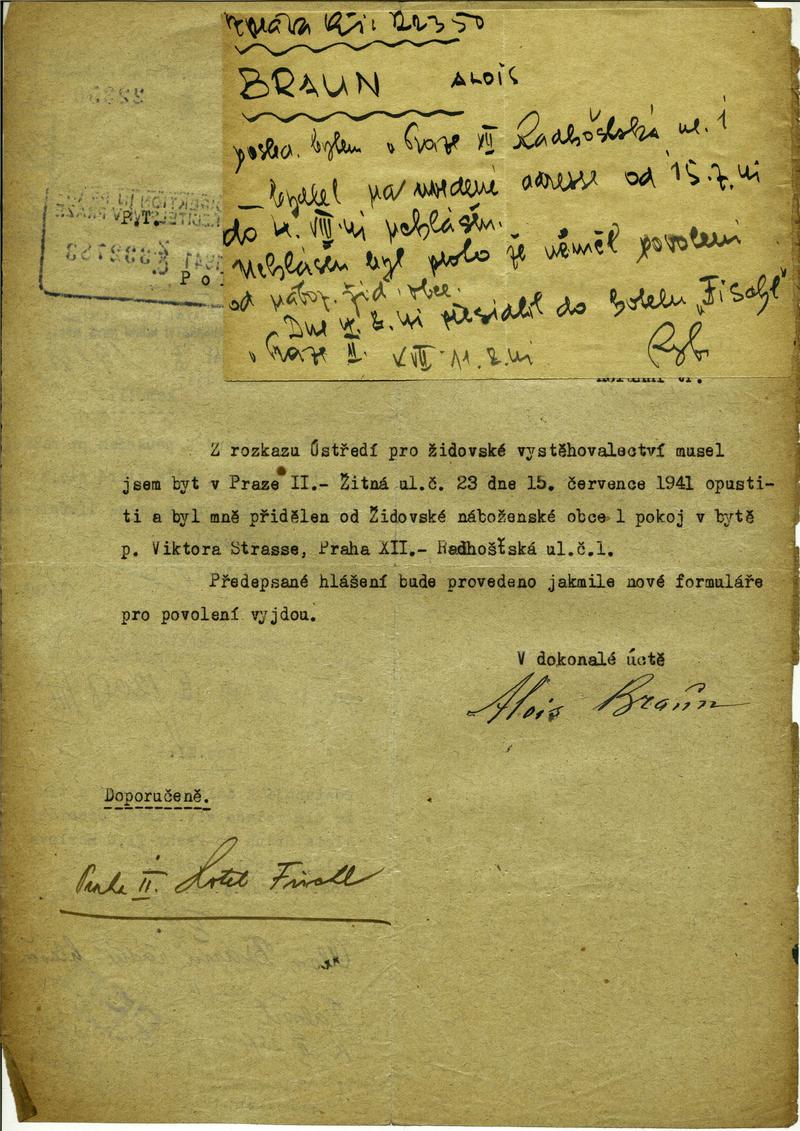 Zpráva čj. 22350
BRAUN ALOIS
posled. bytem v Praze XII Radhošťská ul. 1
– bydlel na uvedené adresse od 15.7.
do VIII. nehlášen.
Nehlášen byl proto že neměl povolení
od nábož. žid. obce.
Dne přesídlil do hotelu „Fischl"
v Praze II. XVII 11.8.
P.T.
Z rozkazu Ústředí pro židovské vystěhovalectví musel
jsem byt v Praze II.- Žitná ul.č. 23 dne 15. července 1941 opusti-
ti a byl mně přidělen od Židovské náboženské obce 1 pokoj v bytě
p. Viktora Strasse, Praha XII.- Radhoštská ul.č.1.
Předepsané hlášení bude provedeno jakmile nové formuláře
pro povolení vyjdou.
V dokonalé úctě
Alois Braun
Doporučeně.
Praha II. Hotel Fischl